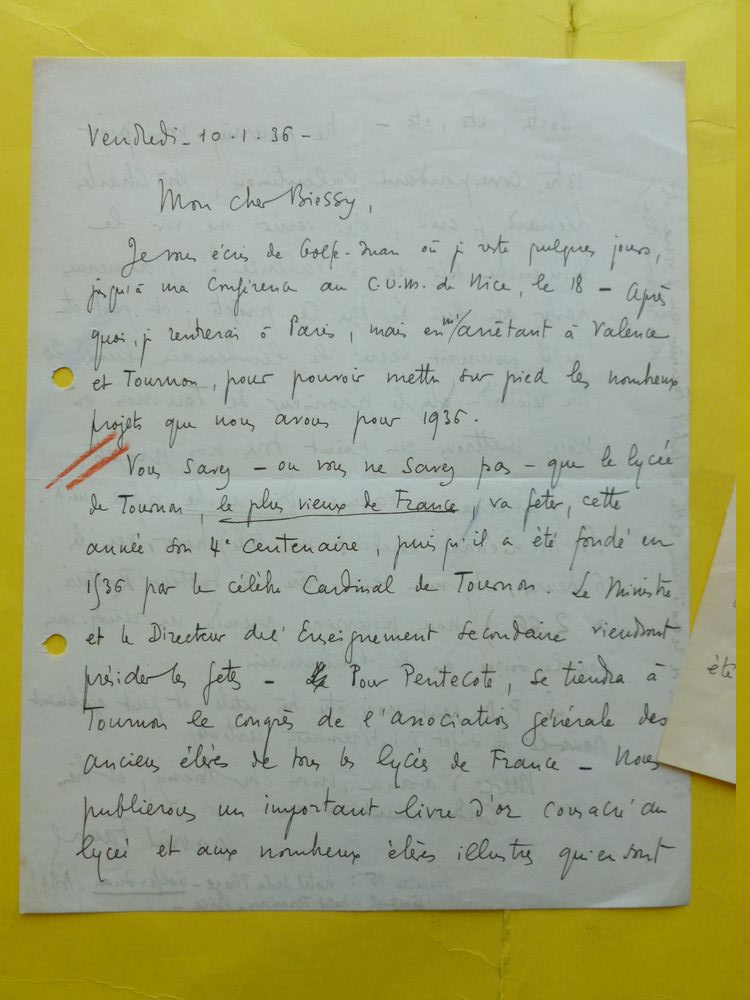 Vendredi - 10.1.36 -
Mon cher Biessy,
Je vous écris de Golfe-Juan où je reste quelques jours,
jusqu'à ma Conférence au C.U.M. de Nice, le 18 - Après
quoi, je rentrerai à Paris, mais en m'arrêtant à Valence
et Tournon, pour pouvoir mettre sur pied les nombreux
projets que nous avons pour 1936.
Vous savez - ou vous ne savez pas - que le lycée
de Tournon, le plus vieux de France, va fêter, cette
année son 4e Centenaire, puisqu'il a été fondé en
1536 par le célèbre Cardinal de Tournon. Le Ministre
et le Directeur de l'Enseignement Secondaire viendront
présider les fêtes - Pour Pentecôte, se tiendra à
Tournon le congrès de l'association générale des
anciens élèves de tous les lycées de France - Nous
publierons un important livre d'or consacré au
lycée et aux nombreux élèves illustres qui en sont
été